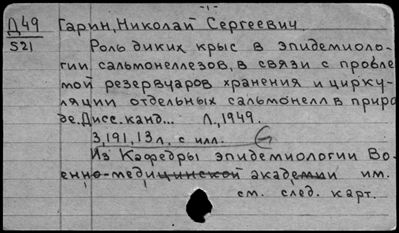 -1-
Д49 Гарин, Николай Сергеевич.
521 Роль диких крыс в эпидемиоло-
гии сальмонеллезов, в связи с пробле
мой резервуаров хранения и цирку-
ляции отдельных сальмонелл в приро
де. Дисс. канд... Л., 1949.
3,191,13 л, с илл.
Из Кафедры эпидемиологии Во-
енно-медицинской академии им.
см. след. карт.